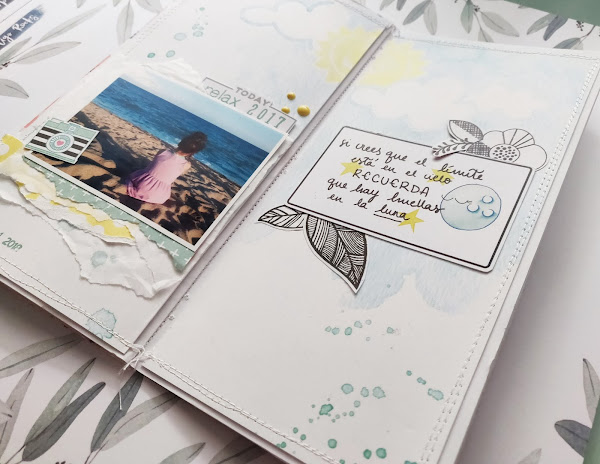 TODAY!
relax 2017
si crees que el límite
está en el cielo
RECUERDA
que hay huellas
en la luna